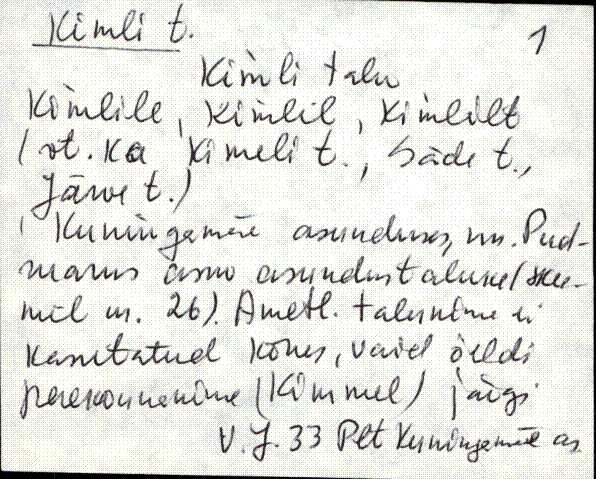 Kimli t.
1
Kimli talu
Kimlile, Kimlil, Kimlilt
(vt. ka Kimeli t., Säde t.,
Järve t.)
Kuningamäe asunduses, nn. Pud-
asundustalune
nr. 26). Ametl. talunime ei
kasutatud kõnes, vaid öeldi
perekonnanime (Kimmel) järgi
V. J. 33 Plt Kuningamäe as.